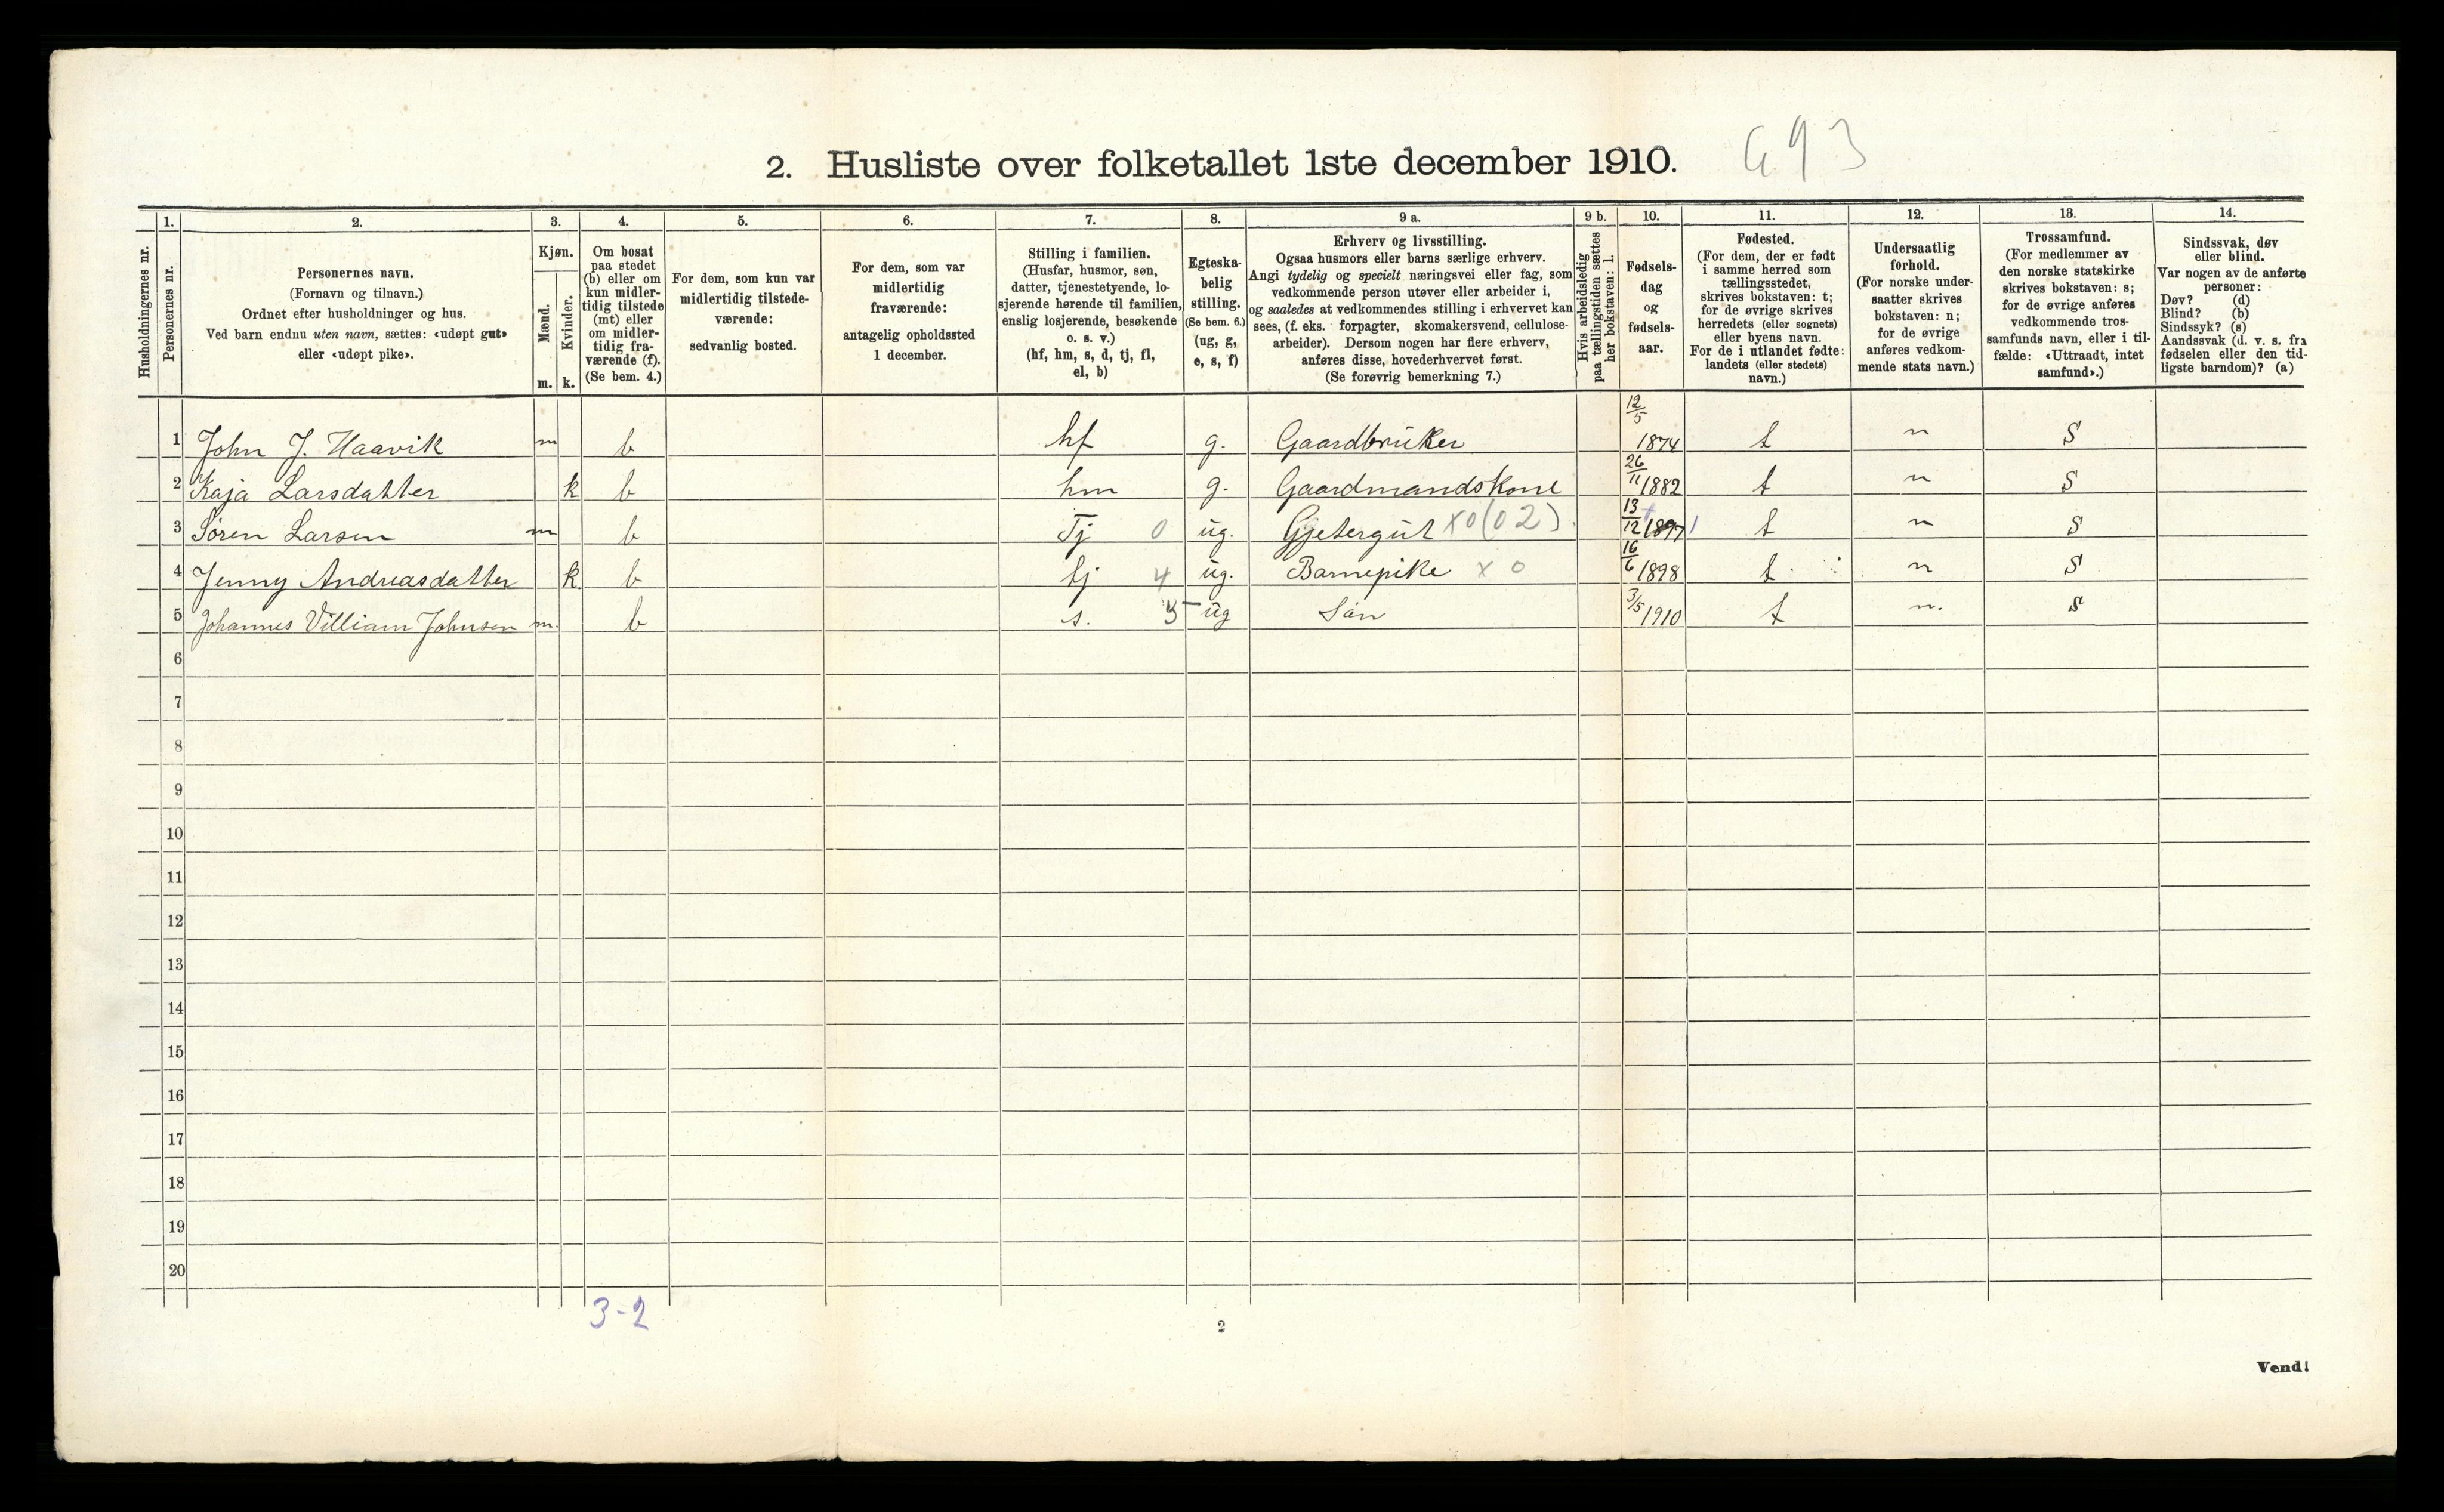 2. Husliste over folketallet 1ste december 1910. 693
Husholdningernes nr.
1. Personernes nr.
2. Personernes navn.
(Fornavn og tilnavn.)
Ordnet efter husholdninger og hus.
Ved barn endnu uten navn, sættes: «udøpt gut»
eller «udøpt pike».
3. Kjøn.
Mænd. m.
Kvinder. k.
4. Om bosat
paa stedet
(b) eller om
kun midler-
tidig tilstede
(mt) eller
om midler-
tidig fra-
værende (f).
(Se bem. 4.)
5. For dem, som kun var
midlertidig tilstede-
værende:
sedvanlig bosted.
6. For dem, som var
midlertidig
fraværende:
antagelig opholdssted
1 december.
7. Stilling i familien.
(Husfar, husmor, søn,
datter, tjenestetyende, lo-
sjerende hørende til familien,
enslig losjerende, besøkende
o. s. v.)
(hf, hm, s, d, tj, fl,
el, b)
8. Egteska-
belig
stilling.
(Se bem. 6.)
(ug, g,
e, s, f)
9 a. Erhverv og livsstilling.
Ogsaa husmors eller barns særlige erhverv.
Angi tydelig og specielt næringsvei eller fag, som
vedkommende person utøver eller arbeider i,
og saaledes at vedkommendes stilling i erhvervet kan
sees, (f. eks. forpagter, skomakersvend, cellulose-
arbeider). Dersom nogen har flere erhverv,
anføres disse, hovederhvervet først.
(Se forøvrig bemerkning 7.)
9 b. Hvis arbeidsledig
paa tællingstiden sættes
her bokstaven: l.
10. Fødsels-
dag
og
fødsels-
aar.
11. Fødested.
(For dem, der er født
i samme herred som
tællingsstedet,
skrives bokstaven: t;
for de øvrige skrives
herredets (eller sognets)
eller byens navn.
For de i utlandet fødte:
landets (eller stedets)
navn.)
12. Undersaatlig
forhold.
(For norske under-
saatter skrives
bokstaven: n;
for de øvrige
anføres vedkom-
mende stats navn.)
13. Trossamfund.
(For medlemmer av
den norske statskirke
skrives bokstaven: s;
for de øvrige anføres
vedkommende tros-
samfunds navn, eller i til-
fælde: «Uttraadt, intet
samfund».)
14. Sindssvak, døv
eller blind.
Var nogen av de anførte
personer:
Døv? (d)
Blind? (b)
Sindssyk? (s)
Aandssvak (d. v. s. fra
fødselen eller den tid-
ligste barndom)? (a)
1 John J. Haavik m b hf g. Gaardbruker 12/5 1874 t n S
2 Kaja Larsdatter k b hm g. Gaardmandskone 26/11 1882 t n S
3 Søren Larsen m b Tj 0 ug. Gjetergut x0(02) 13/12 1897 t n S
4 Jenny Andreasdatter k b tj 4 ug. Barnepike x 0 16/6 1898 t n S
5 Johannes Villiam Johnsen m. b s. 5 ug Sön 3/5 1910 t n. S
6
7
8
9
10
11
12
13
14
15
16
17
18
19
20
3-2
2
Vend!